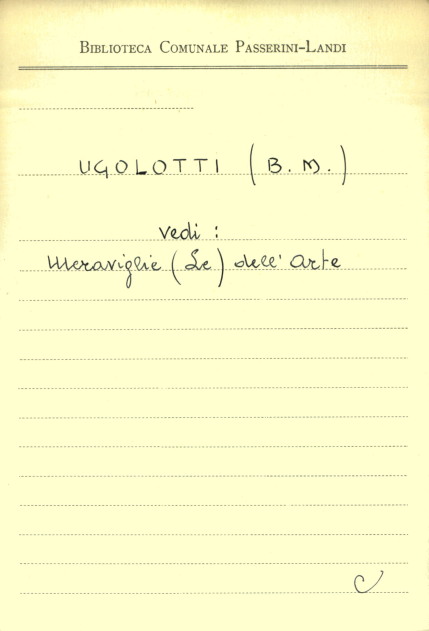 BIBLIOTECA COMUNALE PASSERINI-LANDI
UGOLOTTI (B. M.)
vedi :
Meraviglie (Le) dell' Arte